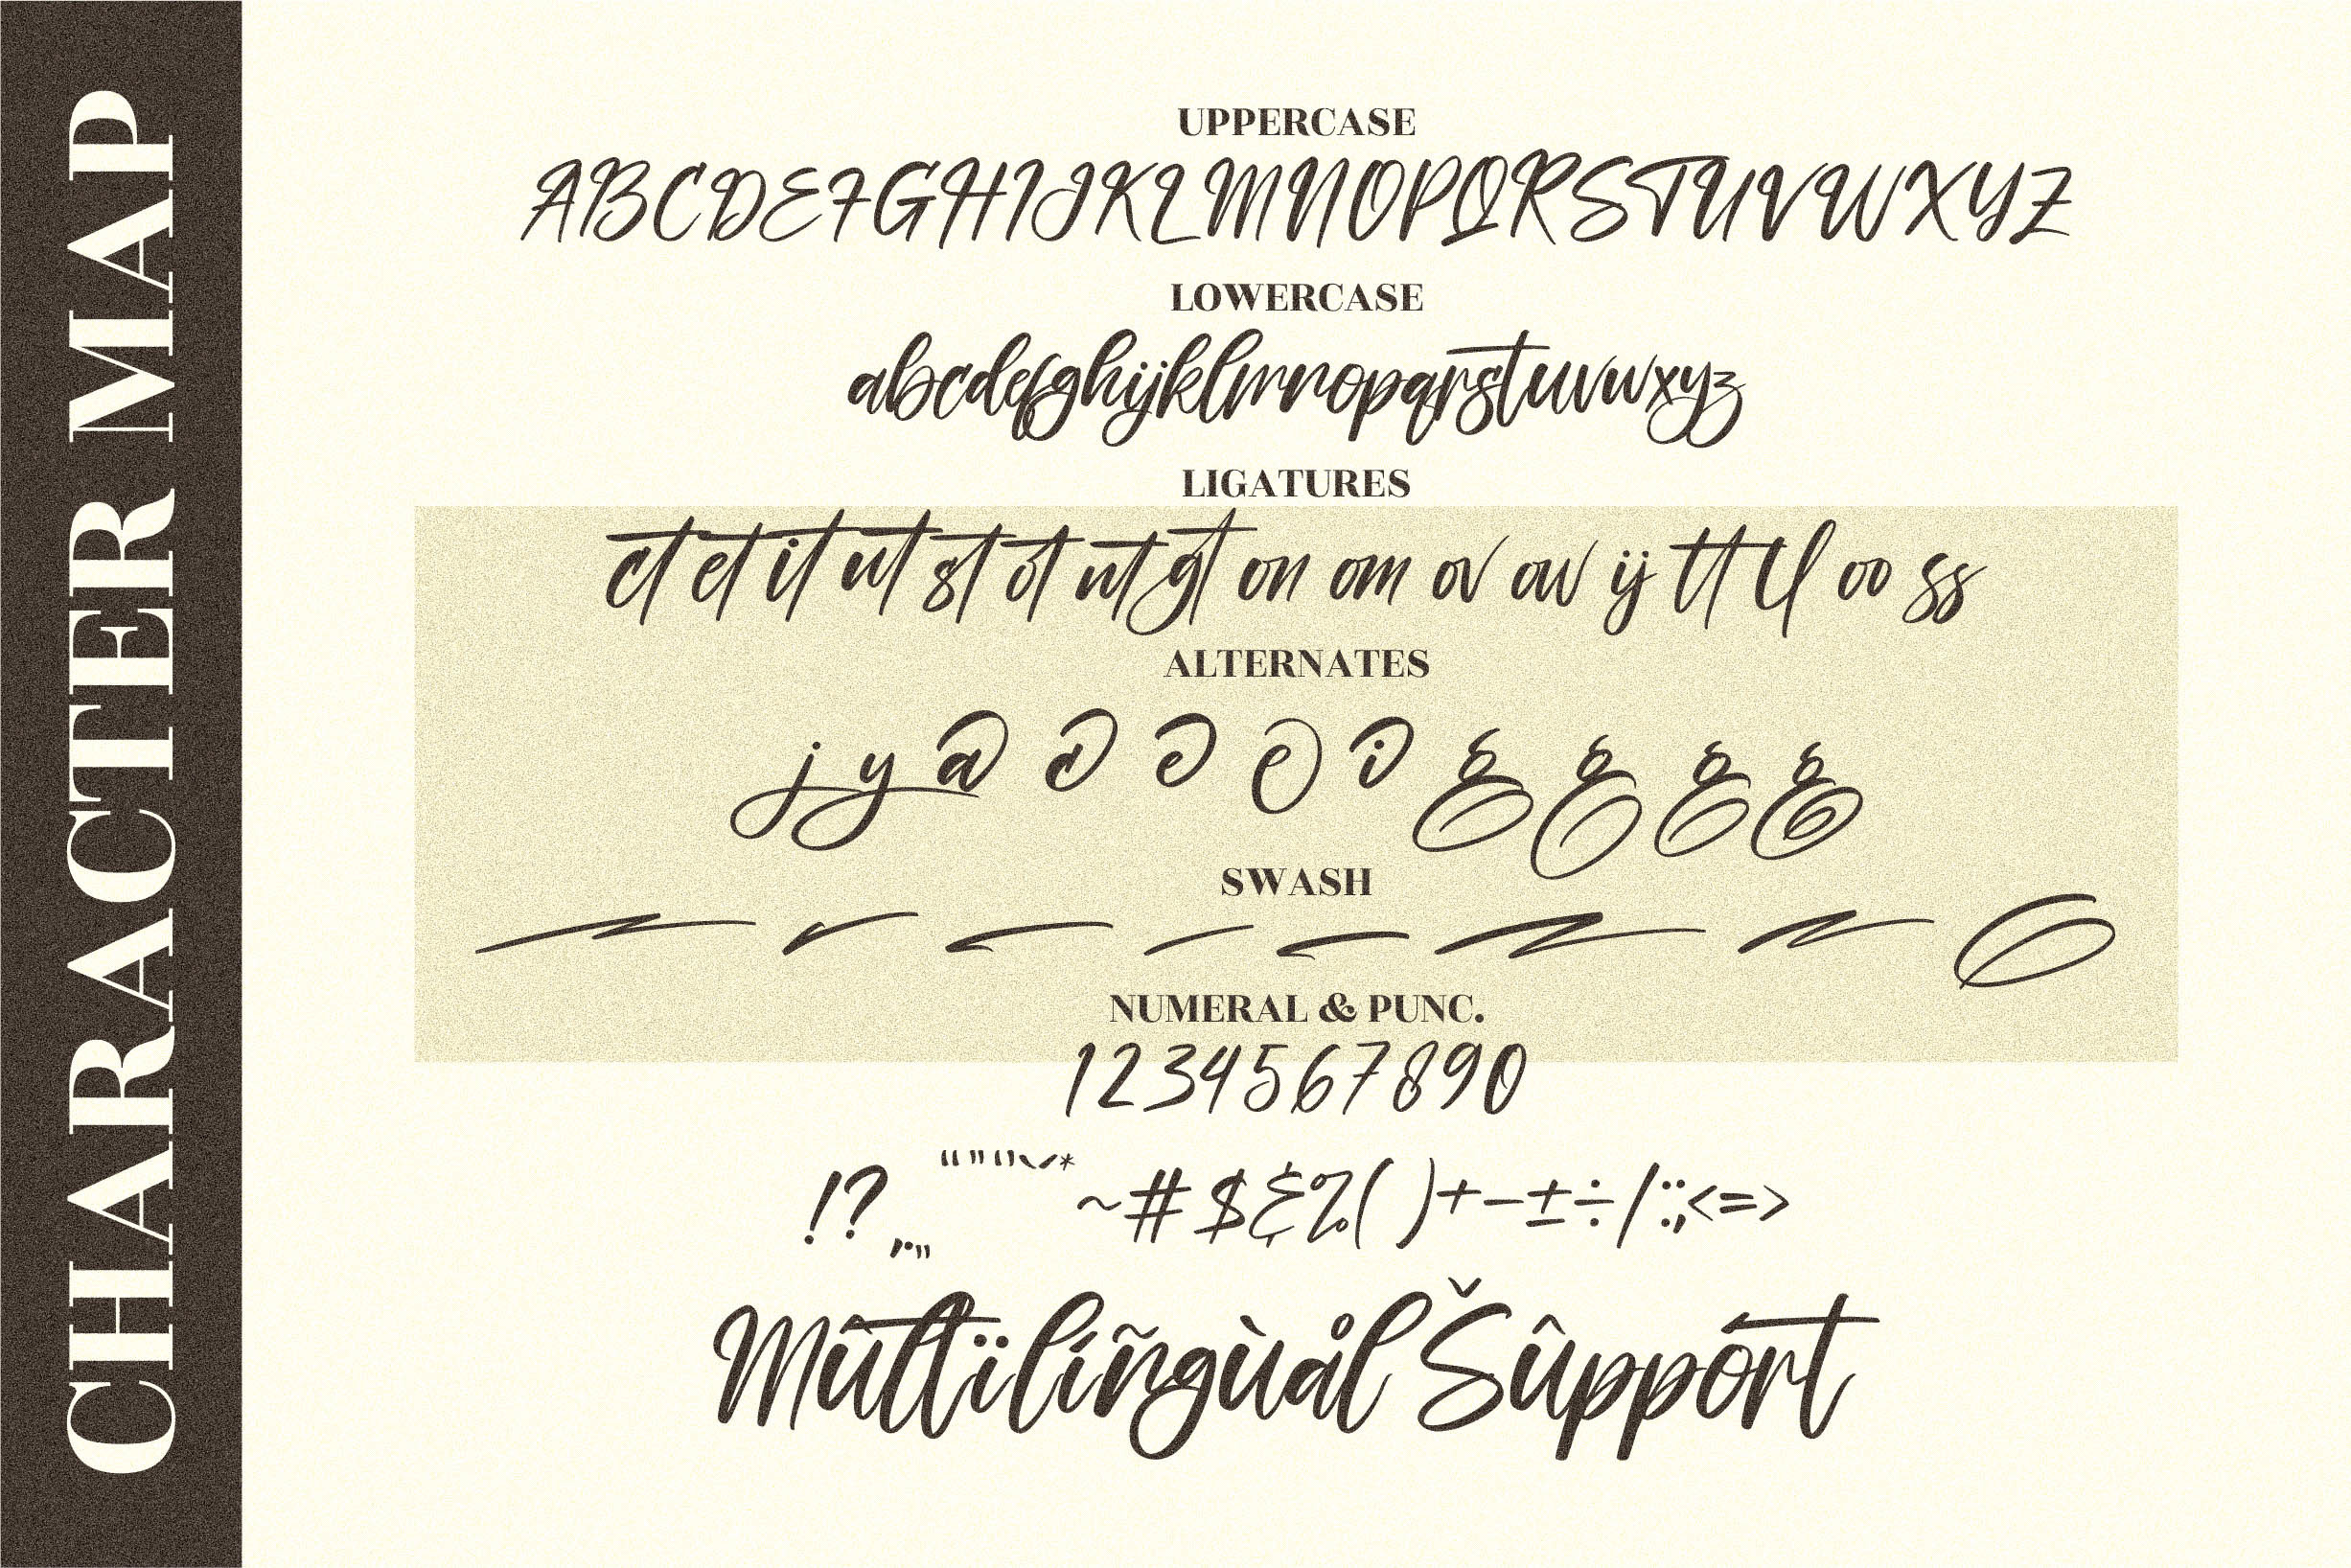 CHARACTER MAP
UPPERCASE
ABCDEFGHIJKLMNOPQRSTUVWXYZ
LOWERCASE
abcdefghijklmnopqrstuvwxyz
LIGATURES
ct et it ut st ot nt gt on om ov ow ij tt tl oo ss
ALTERNATES
j y a c e i g g g g
SWASH
NUMERAL & PUNC.
1234567890
!? ,.„ “ ” " * ~ # $ & % ( ) + − ± ÷ / : ; < = >
Mûltïlíñgùål Šûppórt